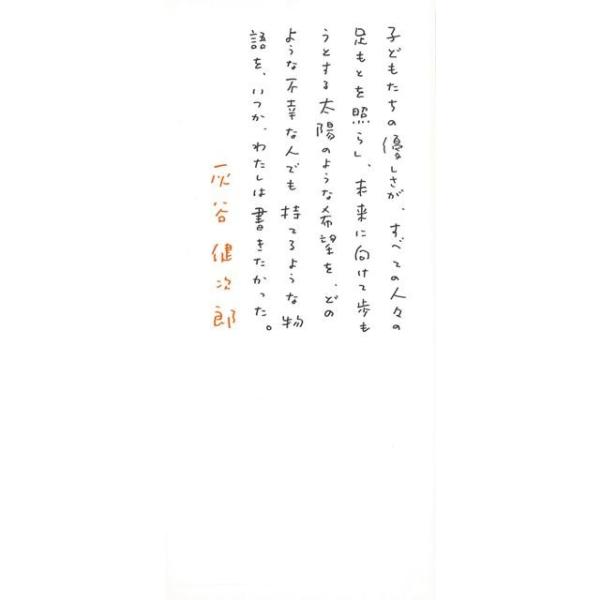 子どもたちの優しさが、すべての人々の
足もとを照らし、未来に向けて歩も
うとする太陽のような希望を、どの
ような不幸な人でも持てるような物
語を、いつか、わたしは書きたかった。
灰谷健次郎